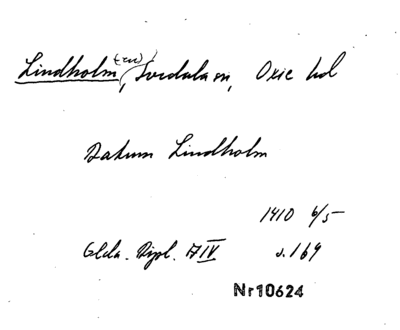 Lindholm (en), Svedala sn, Oxie hd
Datum Lindholm
1410 6/5
Glda. Dipl. A IV s. 169
Nr 10624